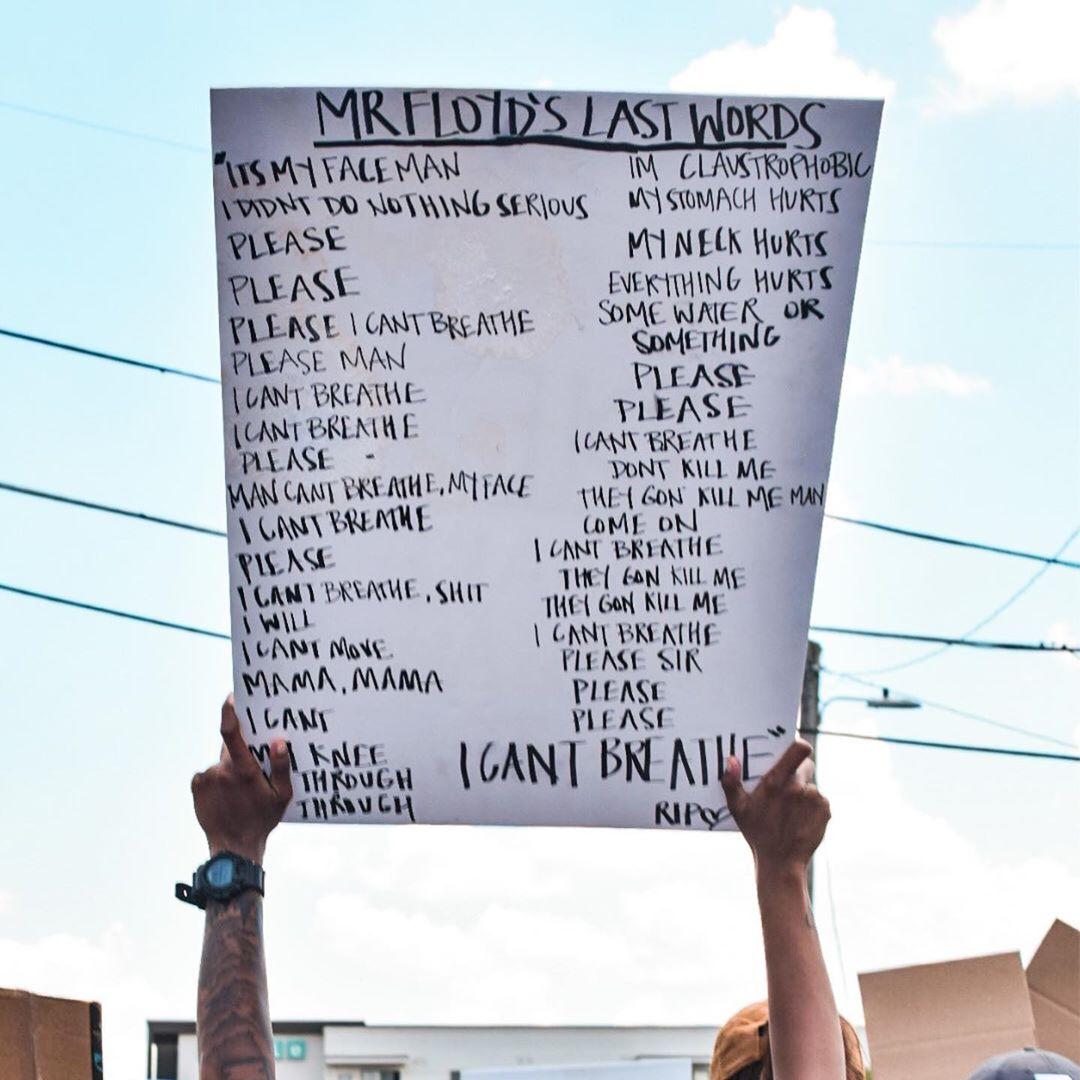 MR FLOYD'S LAST WORDS
"ITS MY FACE MAN
I DIDNT DO NOTHING SERIOUS
PLEASE
PLEASE
PLEASE I CANT BREATHE
PLEASE MAN
I CANT BREATHE
I CANT BREATHE
PLEASE -
MAN CANT BREATHE, MY FACE
I CANT BREATHE
PLEASE
I CANT BREATHE, SHIT
I WILL
I CANT MOVE
MAMA, MAMA
I CANT
MY KNEE
THROUGH
THROUGH
IM CLAUSTROPHOBIC
MY STOMACH HURTS
MY NECK HURTS
EVERYTHING HURTS
SOME WATER OR
SOMETHING
PLEASE
PLEASE
I CANT BREATHE
DONT KILL ME
THEY GON' KILL ME MAN
COME ON
I CANT BREATHE
THEY GON KILL ME
THEY GON KILL ME
I CANT BREATHE
PLEASE SIR
PLEASE
PLEASE
I CANT BREATHE"
RIP♡